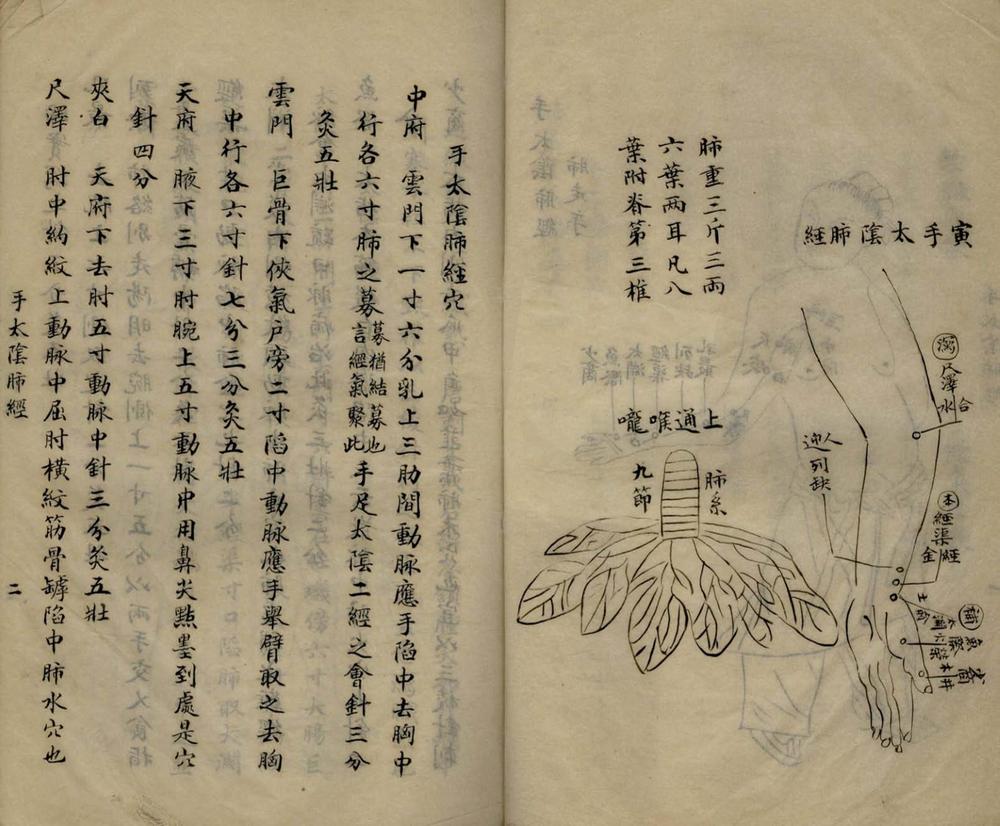 寅手太陰肺經
肺重三斤三兩
六葉兩耳凡八
葉附脊第三椎
上通喉嚨
肺系
九節
瀉
尺澤
水合
人迎
列缺
本
經渠
經金
補
土
木井
少商
手太陰肺經穴
中府 雲門下一寸六分乳上三肋間動脉應手陷中去胸中
行各六寸肺之募募猶結募也言經氣聚此手足太陰二經之會針三分
灸五壯
雲門 巨骨下俠氣戶旁二寸陷中動脉應手舉臂取之去胸
中行各六寸針七分三分灸五壯
天府腋下三寸肘腕上五寸動脉中用鼻尖點墨到處是穴
針四分
夾白 天府下去肘五寸動脉中針三分灸五壯
尺澤 肘中約紋上動脉中屈肘橫紋筋骨罅陷中肺水穴也
手太陰肺經 二